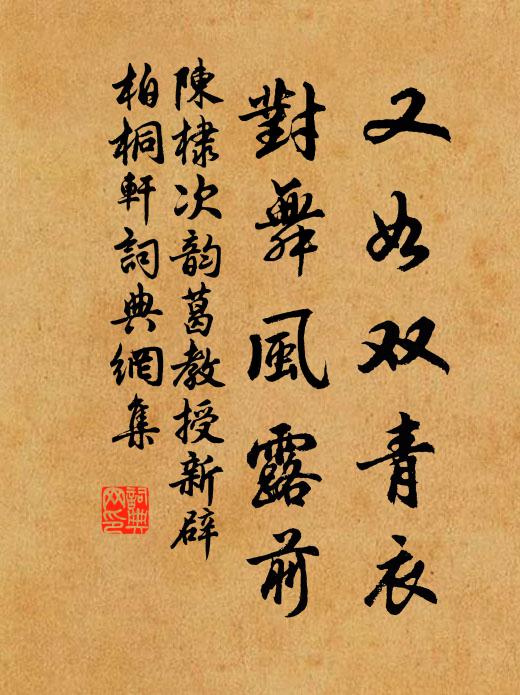 又如双青衣
對舞風露前
陳棣次韵葛教授新辟
柏桐軒詞典網集
詞典
网印